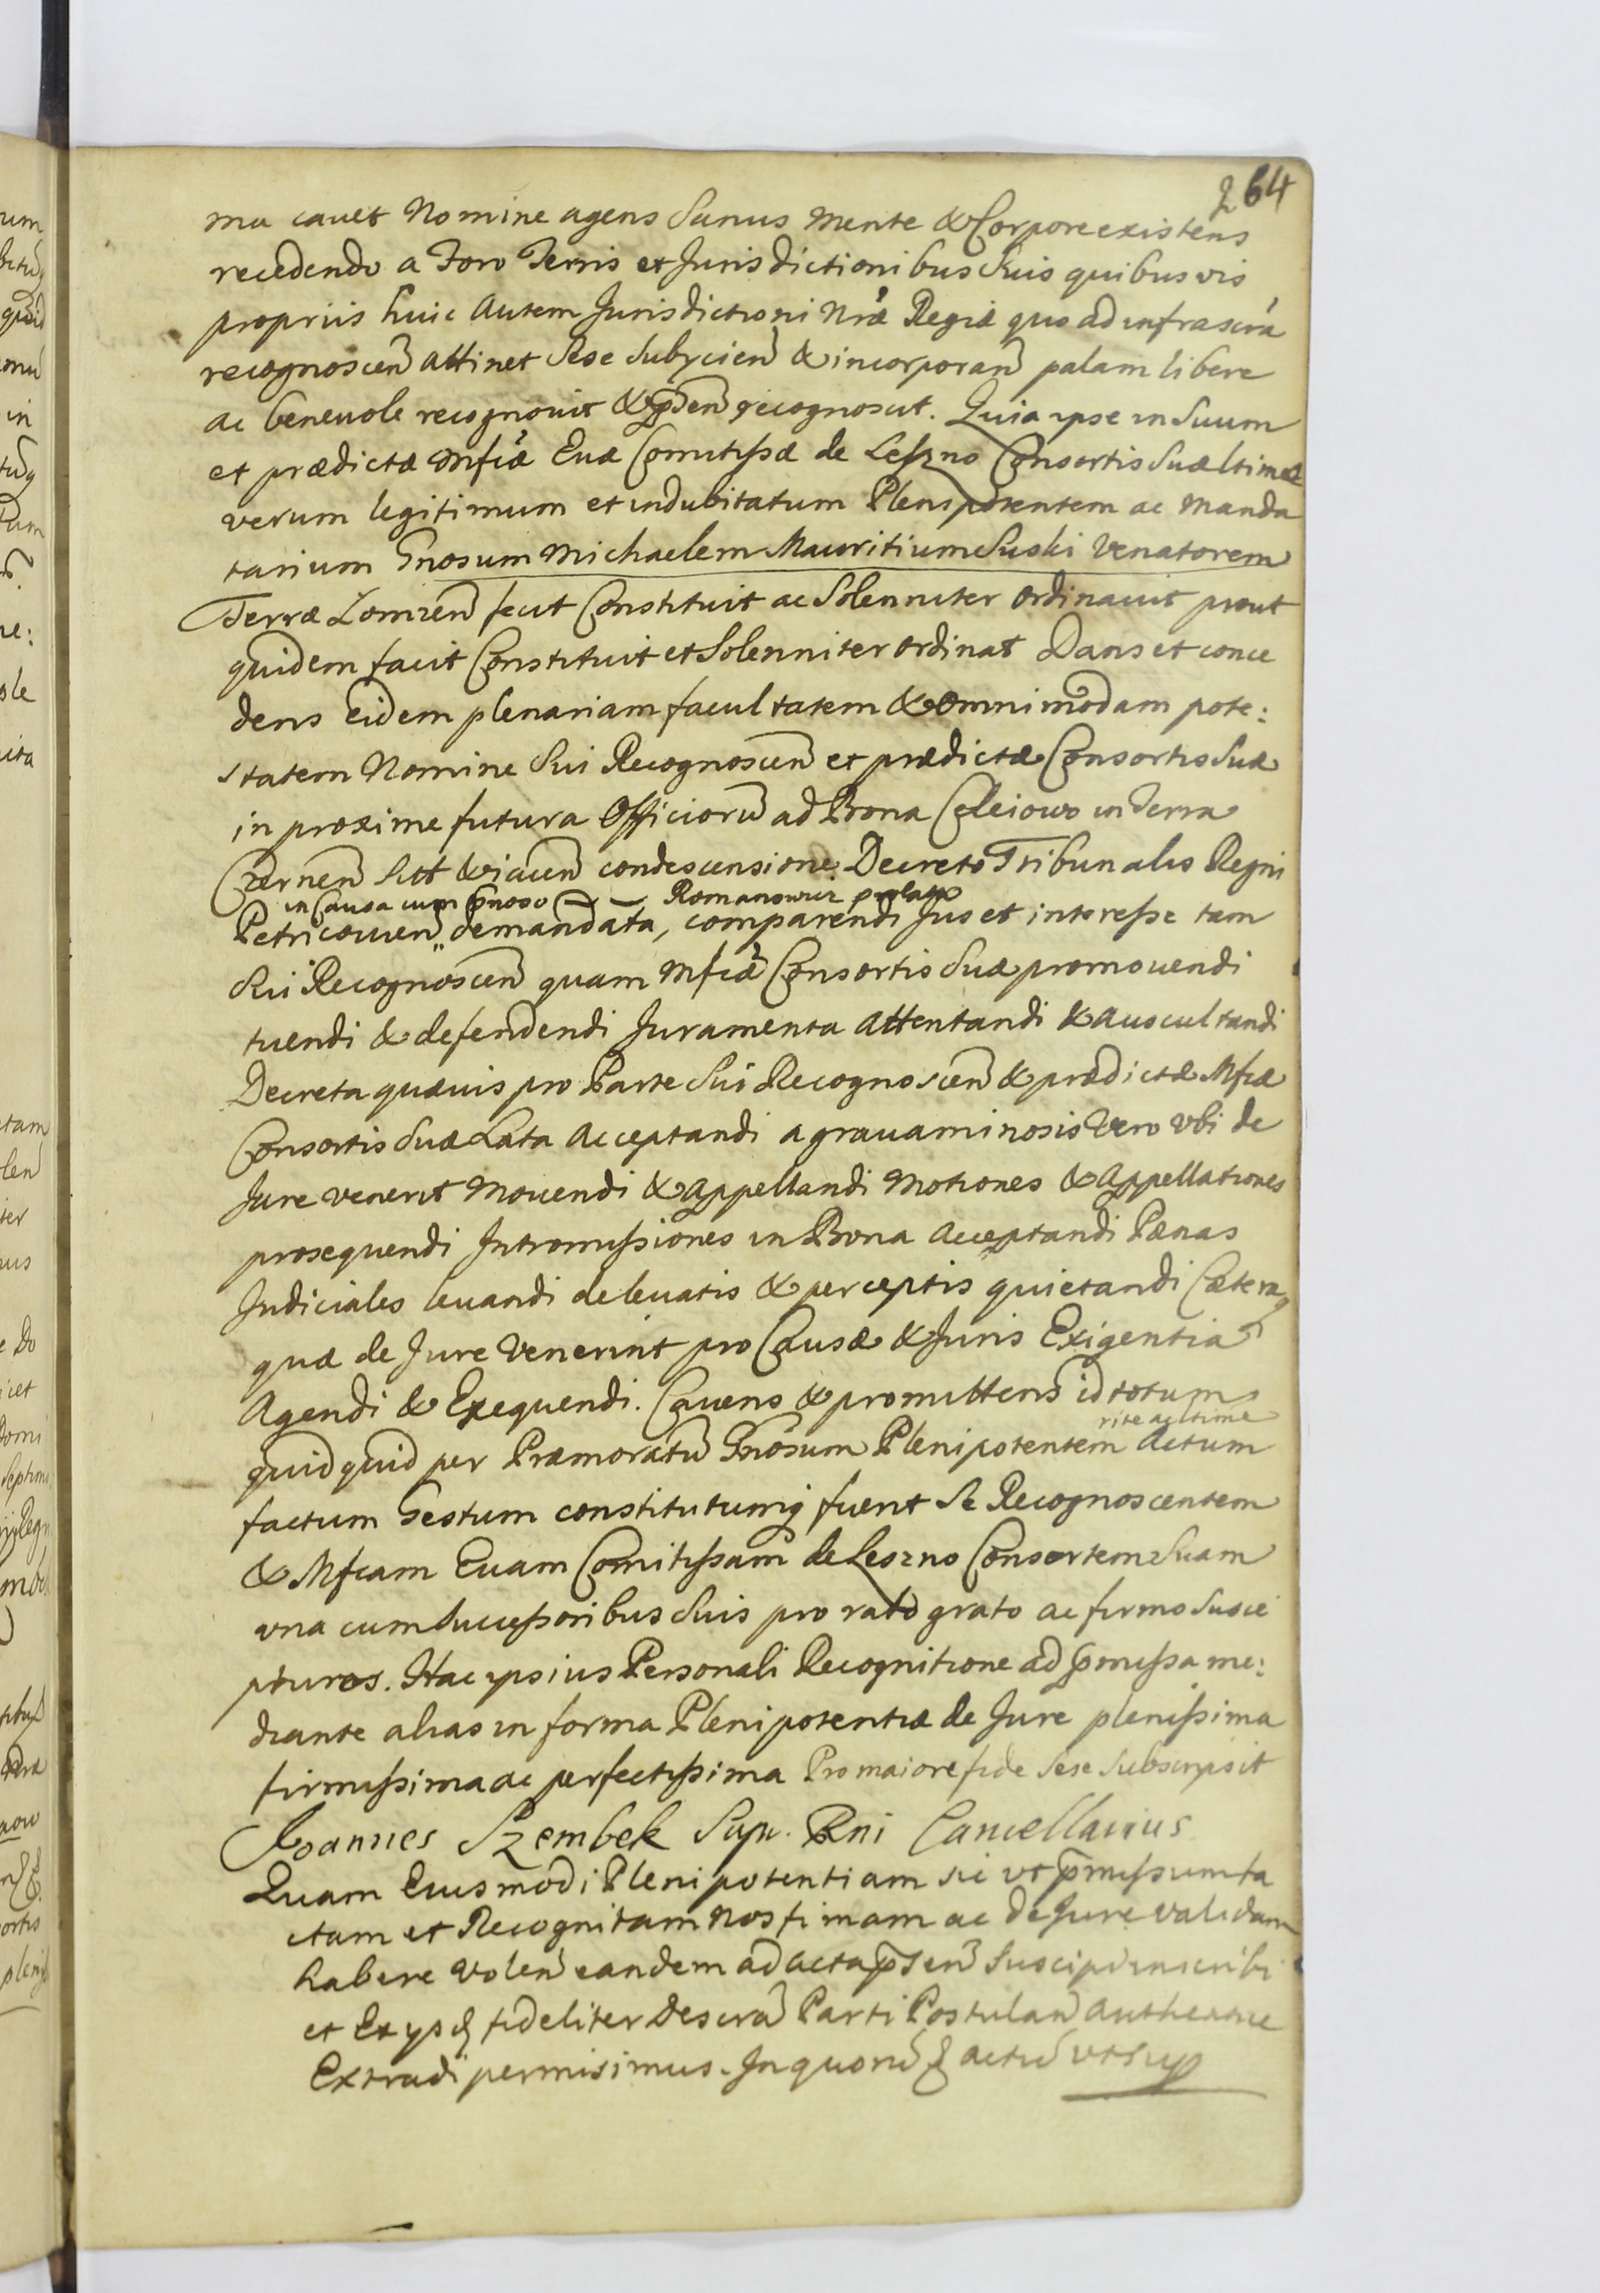 264
ma cavet Nomine agens Sanus Mente & Corpore existens
recedendo a Foro Terris et Jurisdictionibus Suis quibusvis
propriis huic Autem Jurisdictioni Nrâ Regiæ quo ad infrascrã
recognoscen̄ attinet Sese Subijcien̄ & incorporan̄ palam libere
ac benevole recognovit & p̃sen̄ recognoscit. Quia ipse in Suum
et prædictæ Mficæ Evæ Comitissæ de Leszno Consortis Suæ ltimæ
verum legitimum et indubitatum Plenipotentem ac Manda
tarium Gnosum Michaelem Mauritium Suski Venatorem
Terræ Lomzen̄ fecit Constituit ac Solenniter Ordinavit prout
quidem facit Constituit et Solenniter ordinat Dans et conce
dens eidem plenariam facultatem & Omnimodam pote:
statem Nomine Sui Recognoscen̄ et prædictæ Consortis Suæ
in proxime futura Officiorū ad Bona Coleiowo in Terra
Czernen̄ Sitt & iacen̄ condescensione Decreto Tribunalis Regni
in Causa cum Gnoso Romanowicz prolato
Petricovien̄ demandata, comparendi Jus et interesse tam
Sui Recognoscen̄ quam Mficæ Consortis Suæ promovendi
tuendi & defendendi Juramenta Attentandi & Auscultandi
Decreta quævis pro Parte Sui Recognoscen̄ & prædictæ Mficæ
Consortis Suæ Lata Acceptandi a gravaminosis Vero Vbi de
Jure venerit Movendi & Appellandi Motiones & Appellationes
prosequendi Intromissiones in Bona Acceptandi Pænas
Judiciales levandi de levatis & perceptis quietandi Cæteraq
quæ de Jure Venerint pro Causæ & Juris Exigentia
Agendi & Exequendi. Cavens & promittens id totum
rite ac ltime
quidquid per Præmoratū Gnosum Plenipotentem Actum
factum Gestum constitutumq fuerit Se Recognoscentem
& Mficam Evam Comitissam de Leszno Consortem Suam
vna cum Successoribus Suis pro rato grato ac firmo Susce
pturos. Hac ipsius Personali Recognitione ad p̃missa me:
diante alias in forma Plenipotentiæ de Jure plenissima
firmissima ac perfectissima Pro maiore fide Sese Subscripsit
Joannes Szembek Sup. Rni Cancellarius
Quam Eiusmodi Plenipotentiam sic vt p̃missum fa
ctam et Recognitam Nos firmam ac de Jure validam
habere Volen̄ eandem ad Acta p̃sen̄ Suscipi inscribi
et Ex ijsd fideliter Descrã Parti Postulan̄ Authentice
Extradi permisimus. In quorū & Actū vt Sup